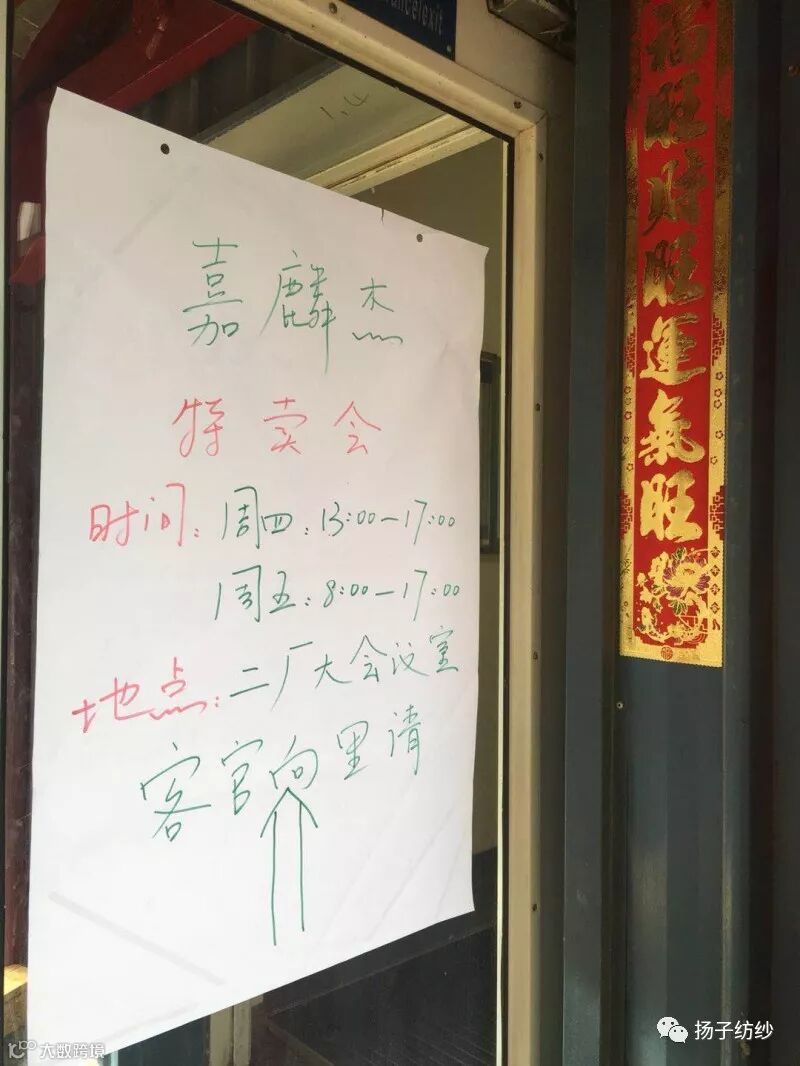 嘉麟杰
特卖会
时间：周四：13:00—17:00
周五：8:00—17:00
地点：二厂大会议室
客官向里请
福旺财旺運氣旺
1.4
ance/exit
扬子纺纱
大数跨境